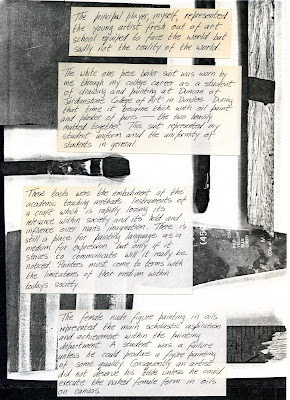 The principal player, myself, represented
the young artist fresh out of art
school equiped to face the world but
sadly not the reality of the world.
The white one piece boiler suit was worn by
me through my college career as a student
of drawing and painting at Duncan of
Jordanstone College of Art in Dundee. During
that time it became thick with oil paint
and plaster of paris — the two heavily
matted together. This suit represented my
student uniform and the uniformity of
students in general.
These tools were the embodiment of the
academic teaching methods. Instruments of
a craft which is rapidly loosing its
relevance within society and its hold and
influence over man's imagination. There is
still a place for painting language as a
medium for expression but only if it
strives to communicate will it really be
noticed. Painters must come to terms with
the limitations of their medium within
todays society.
The female nude figure painting in oils
represented the main scholastic aspiration
and achievement within the painting
department. A student was a failure
unless he could produce a figure painting
of some quality. Consequently an artist
did not deserve his title unless he could
execute the naked female form in oils
on canvas.